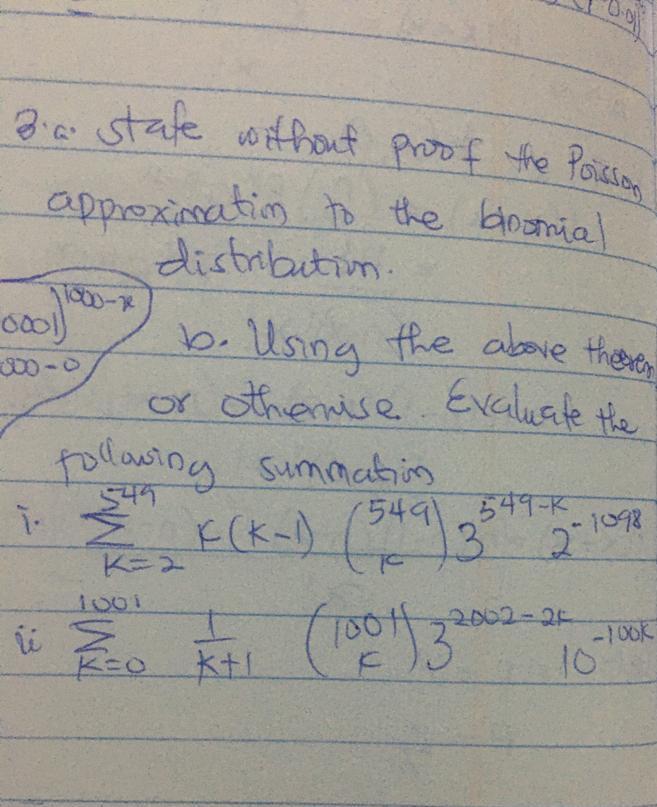 0.01
3.a. state without proof the Poisson
approximation to the binomial
distribution.
0001)^1000-x
000-0
b. Using the above theorem
or otherwise. Evaluate the
following summation
i. \sum_{K=2}^{549} K(K-1) \binom{549}{K} 3^{549-K} 2^{-1098}
ii \sum_{K=0}^{1001} \frac{1}{K+1} \binom{1001}{K} 3^{2002-2K} 10^{-100K}